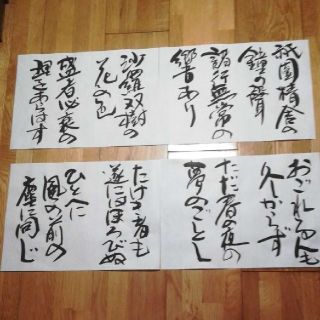 祇園精舎の
鐘の聲
諸行無常の
響あり
沙羅双樹の
花の色
盛者必衰の
理をあらはす
おごれる人も
久しからず
ただ春の夜の
夢のごとし
たける者も
遂にはほろびぬ
ひとへに
風の前の
塵に同じ